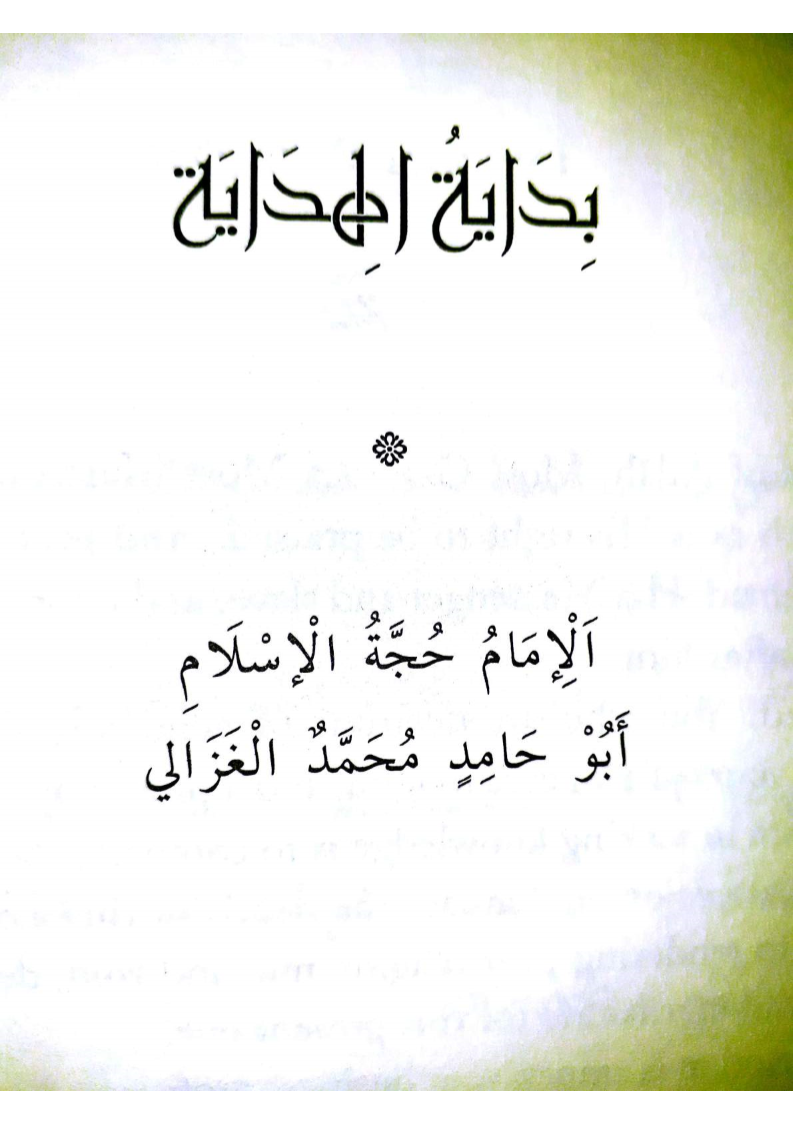 بِدَايَةُ الهِدَايَة
اَلْإِمَامُ حُجَّةُ الْإِسْلَامِ
أَبُوْ حَامِدٍ مُحَمَّدٌ الْغَزَالي